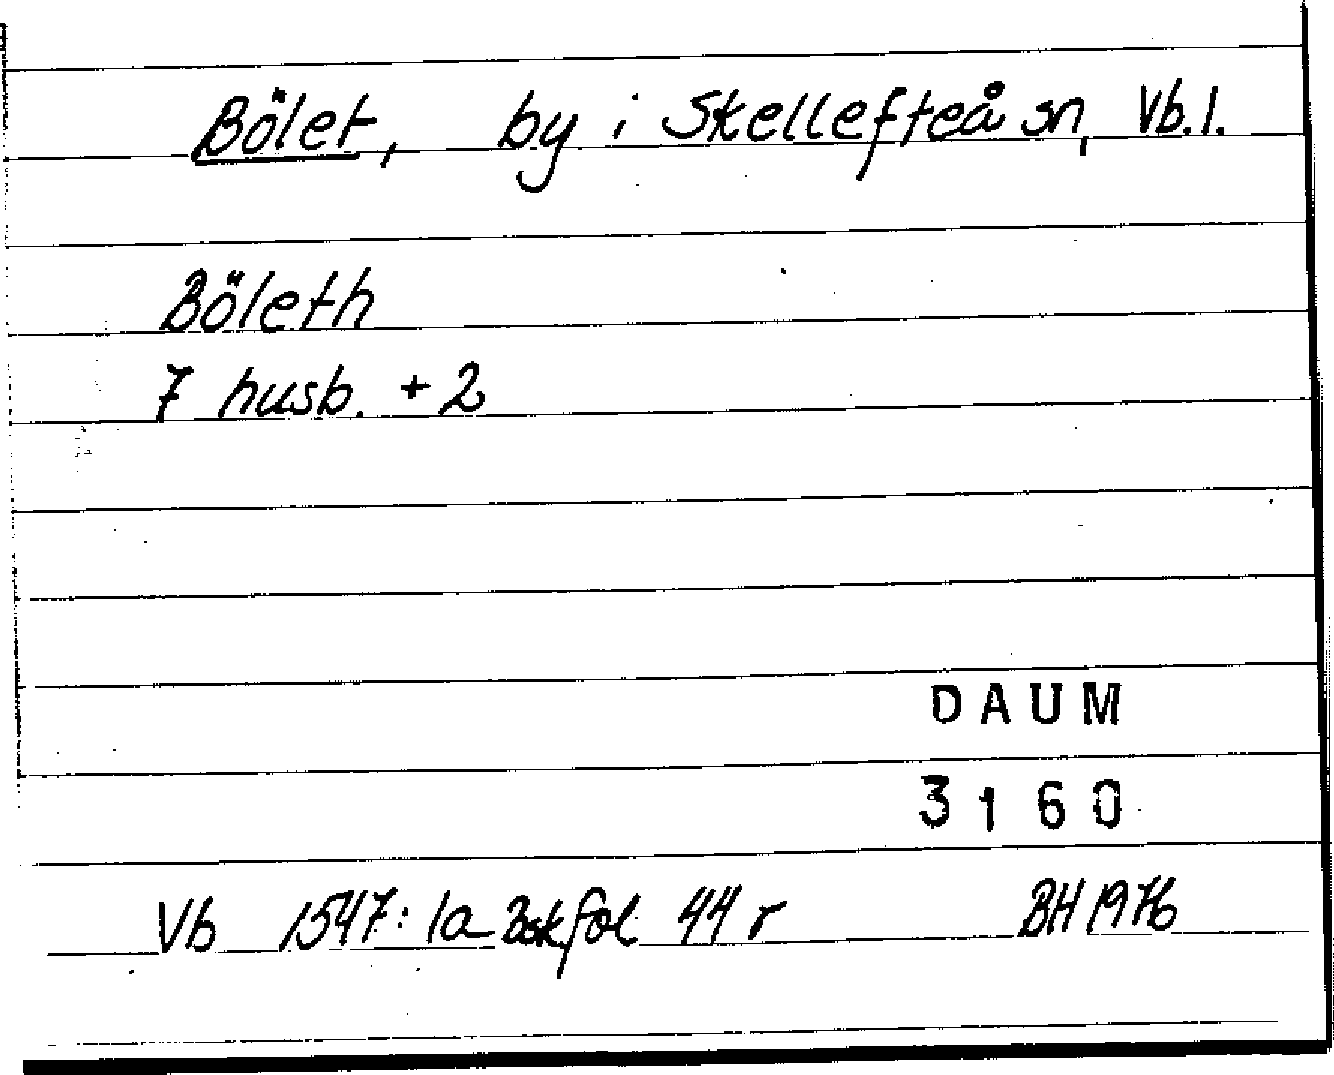 Bölet, by i Skellefteå sn, Vb.l.
Böleth
7 husb. + 2
DAUM
3160
Vb 1547: 1a fol 44 r BH 1976